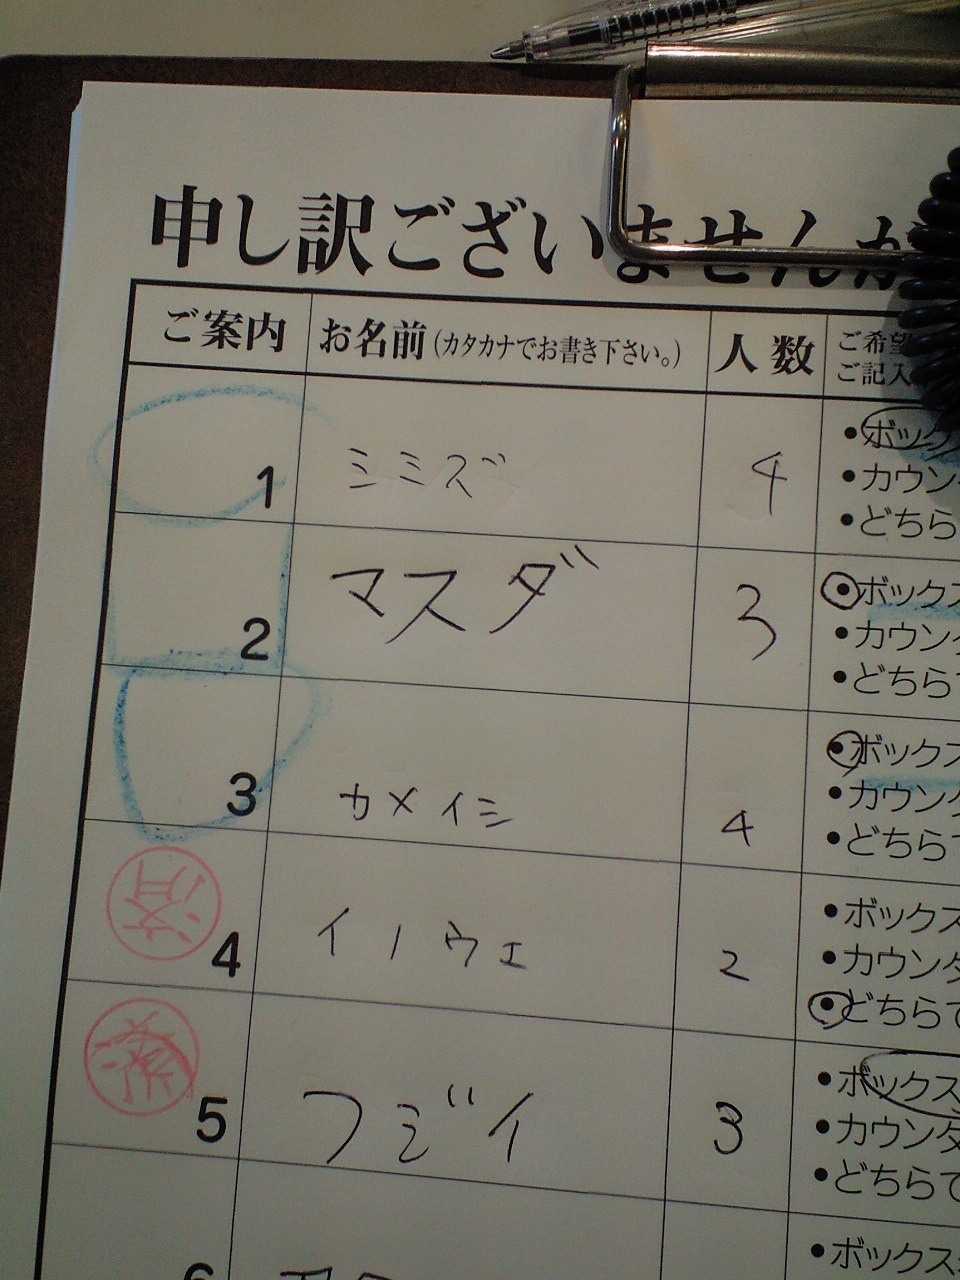 申し訳ございませんが
ご案内 お名前(カタカナでお書き下さい。) 人数 ご希望
ご記入
1 シミズ 4 •ボックス
•カウン
•どちら
2 マスダ 3 •ボックス
•カウン
•どちらで
3 カメイシ 4 •ボックス
•カウン
•どちらで
済 4 イノウエ 2 •ボックス
•カウンタ
•どちらで
済 5 フジイ 3 •ボックス
•カウンタ
•どちらで
6 •ボックス